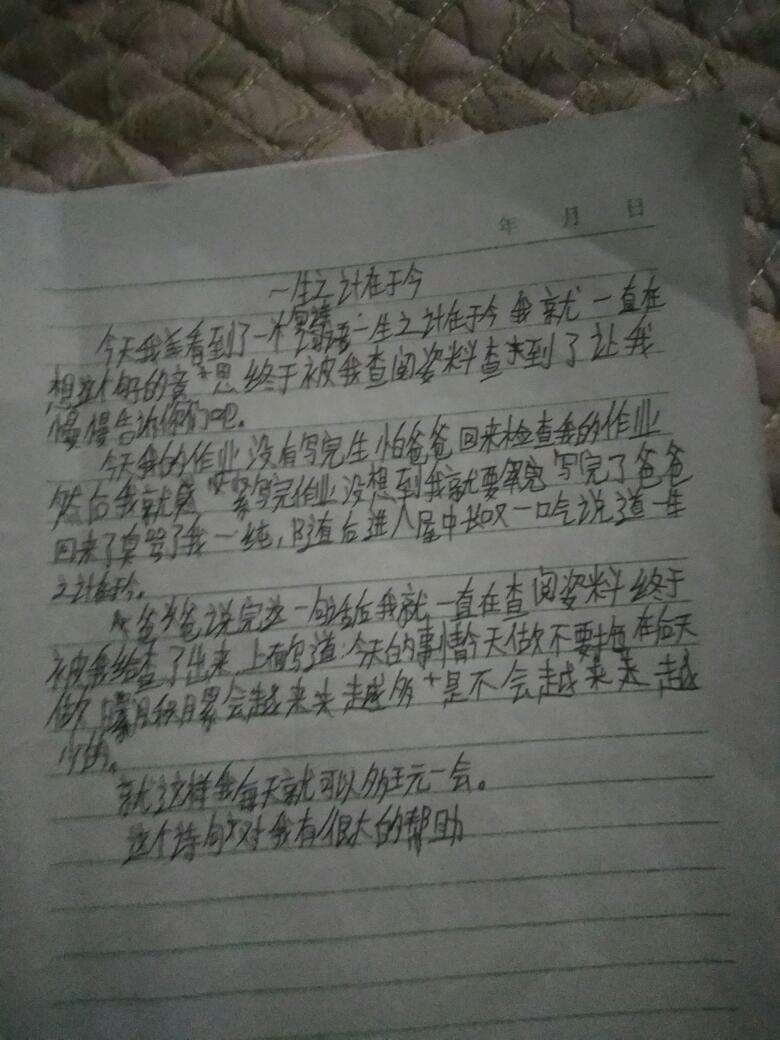 年 月 日
一生之计在于今
今天我看到了一 谚语一生之计在于今 我就一直在
想这个 的意思终于被我查阅资料查到了让我
慢慢告诉你们吧。
今天我的作业没有写完生怕爸爸回来检查我的作业
然后我就 紧写完作业没想到我就要 写完了爸爸
回来了 骂了我一 ,随后进入屋中 叹一口气说道一生
之计在于今。
爸爸说完这一句话后我就一直在查阅资料终于
被我给查了出来上面写道:今天的事情今天做不要 在后天
做 日积月累会越来 越多 是不会越来 越
少的。
就这样我每天就可以多玩一会。
这个诗句对我有很大的帮助